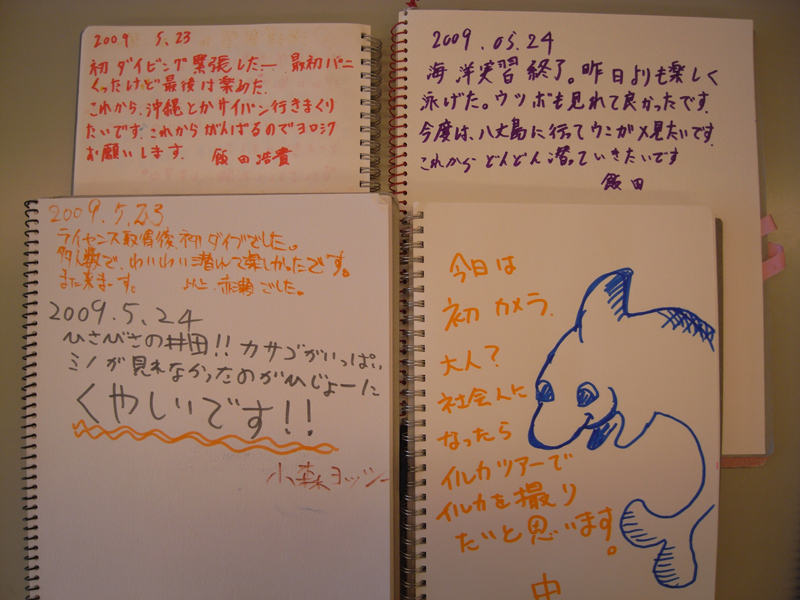 2009 5.23
初ダイビング緊張したー 最初パニ
くったけど最後は楽めた
これから、沖縄とかサイパン行きまくり
たいです。これからがんばるのでヨロシク
お願いします. 飯田浩貴
2009.05.24
海洋実習終了。昨日よりも楽しく
泳げた。ウツボも見れて良かったです.
今度は、八丈島に行ってウミガメ見たいです.
これから どんどん潜っていきたいです
飯田
2009.5.23
ライセンス取得後、初ダイブでした。
多人数で、わいわい潜んで楽しかったです。
また来ます。 以上 赤瀬でした。
2009.5.24
ひさびさの井田!! カサゴがいっぱい
ミノが見れなかったのがひじょーに
くやしいです!!
小森ヨッシー
今日は
初カメラ.
大人?
社会人に
なったら
イルカツアーで
イルカを撮り
たいと思います。
中